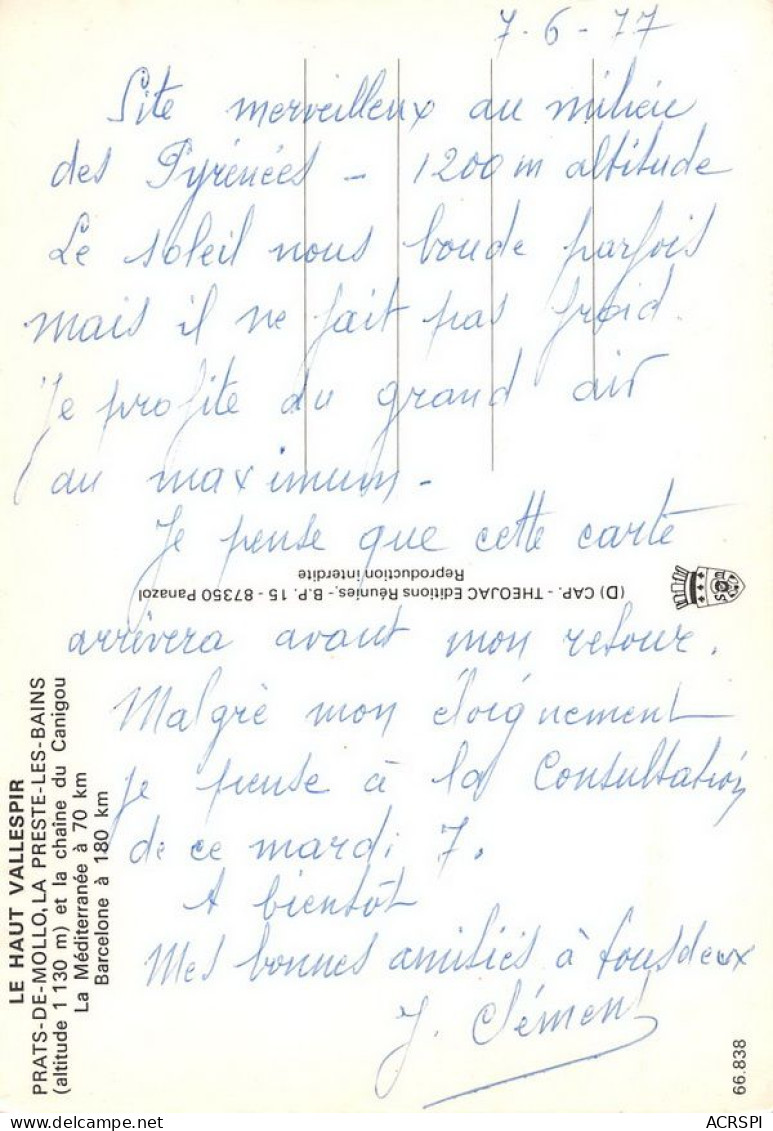 7-6-77
Site merveilleux au milieu
des Pyrénées - 1200 m altitude
Le soleil nous boude parfois
mais il ne fait pas froid.
Je profite du grand air
au maximum -
Je pense que cette carte
arrivera avant mon retour.
Malgré mon éloignement
je pense à la Consultation
de ce mardi 7.
A bientôt
Mes bonnes amitiés à tous deux
J. Clément
(D) CAP. - THEOJAC Editions Réunies, - B.P. 15 - 87350 Panazol
Reproduction interdite
LE HAUT VALLESPIR
PRATS-DE-MOLLO, LA PRESTE-LES-BAINS
(altitude 1 130 m) et la chaîne du Canigou
La Méditerranée à 70 km
Barcelone à 180 km
66.838
ACRSPI